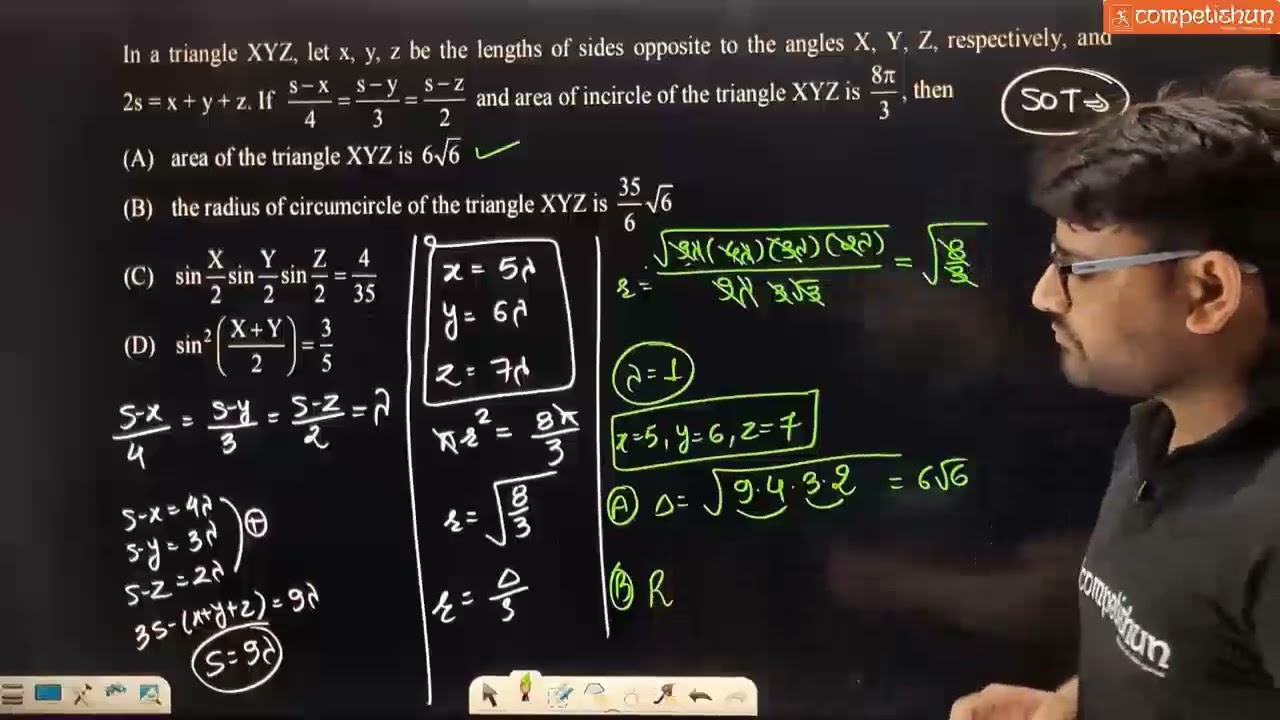 competishun
In a triangle XYZ, let x, y, z be the lengths of sides opposite to the angles X, Y, Z, respectively, and
2s = x + y + z. If (s−x)/4 = (s−y)/3 = (s−z)/2 and area of incircle of the triangle XYZ is 8π/3, then
SOT⇒
(A) area of the triangle XYZ is 6√6 ✓
(B) the radius of circumcircle of the triangle XYZ is 35/6 √6
(C) sin X/2 sin Y/2 sin Z/2 = 4/35
(D) sin² ((X+Y)/2) = 3/5
(s-x)/4 = (s-y)/3 = (s-z)/2 = λ
s-x = 4λ
s-y = 3λ
s-z = 2λ
(+)
3s-(x+y+z) = 9λ
s = 9λ
x = 5λ
y = 6λ
z = 7λ
πr² = 8π/3
r = √(8/3)
r = Δ/s
r = √(9λ(4λ)(3λ)(2λ)) / 9λ = √(8/3)
λ = 1
x=5, y=6, z=7
(A) Δ = √(9·4·3·2) = 6√6
(B) R
competishun